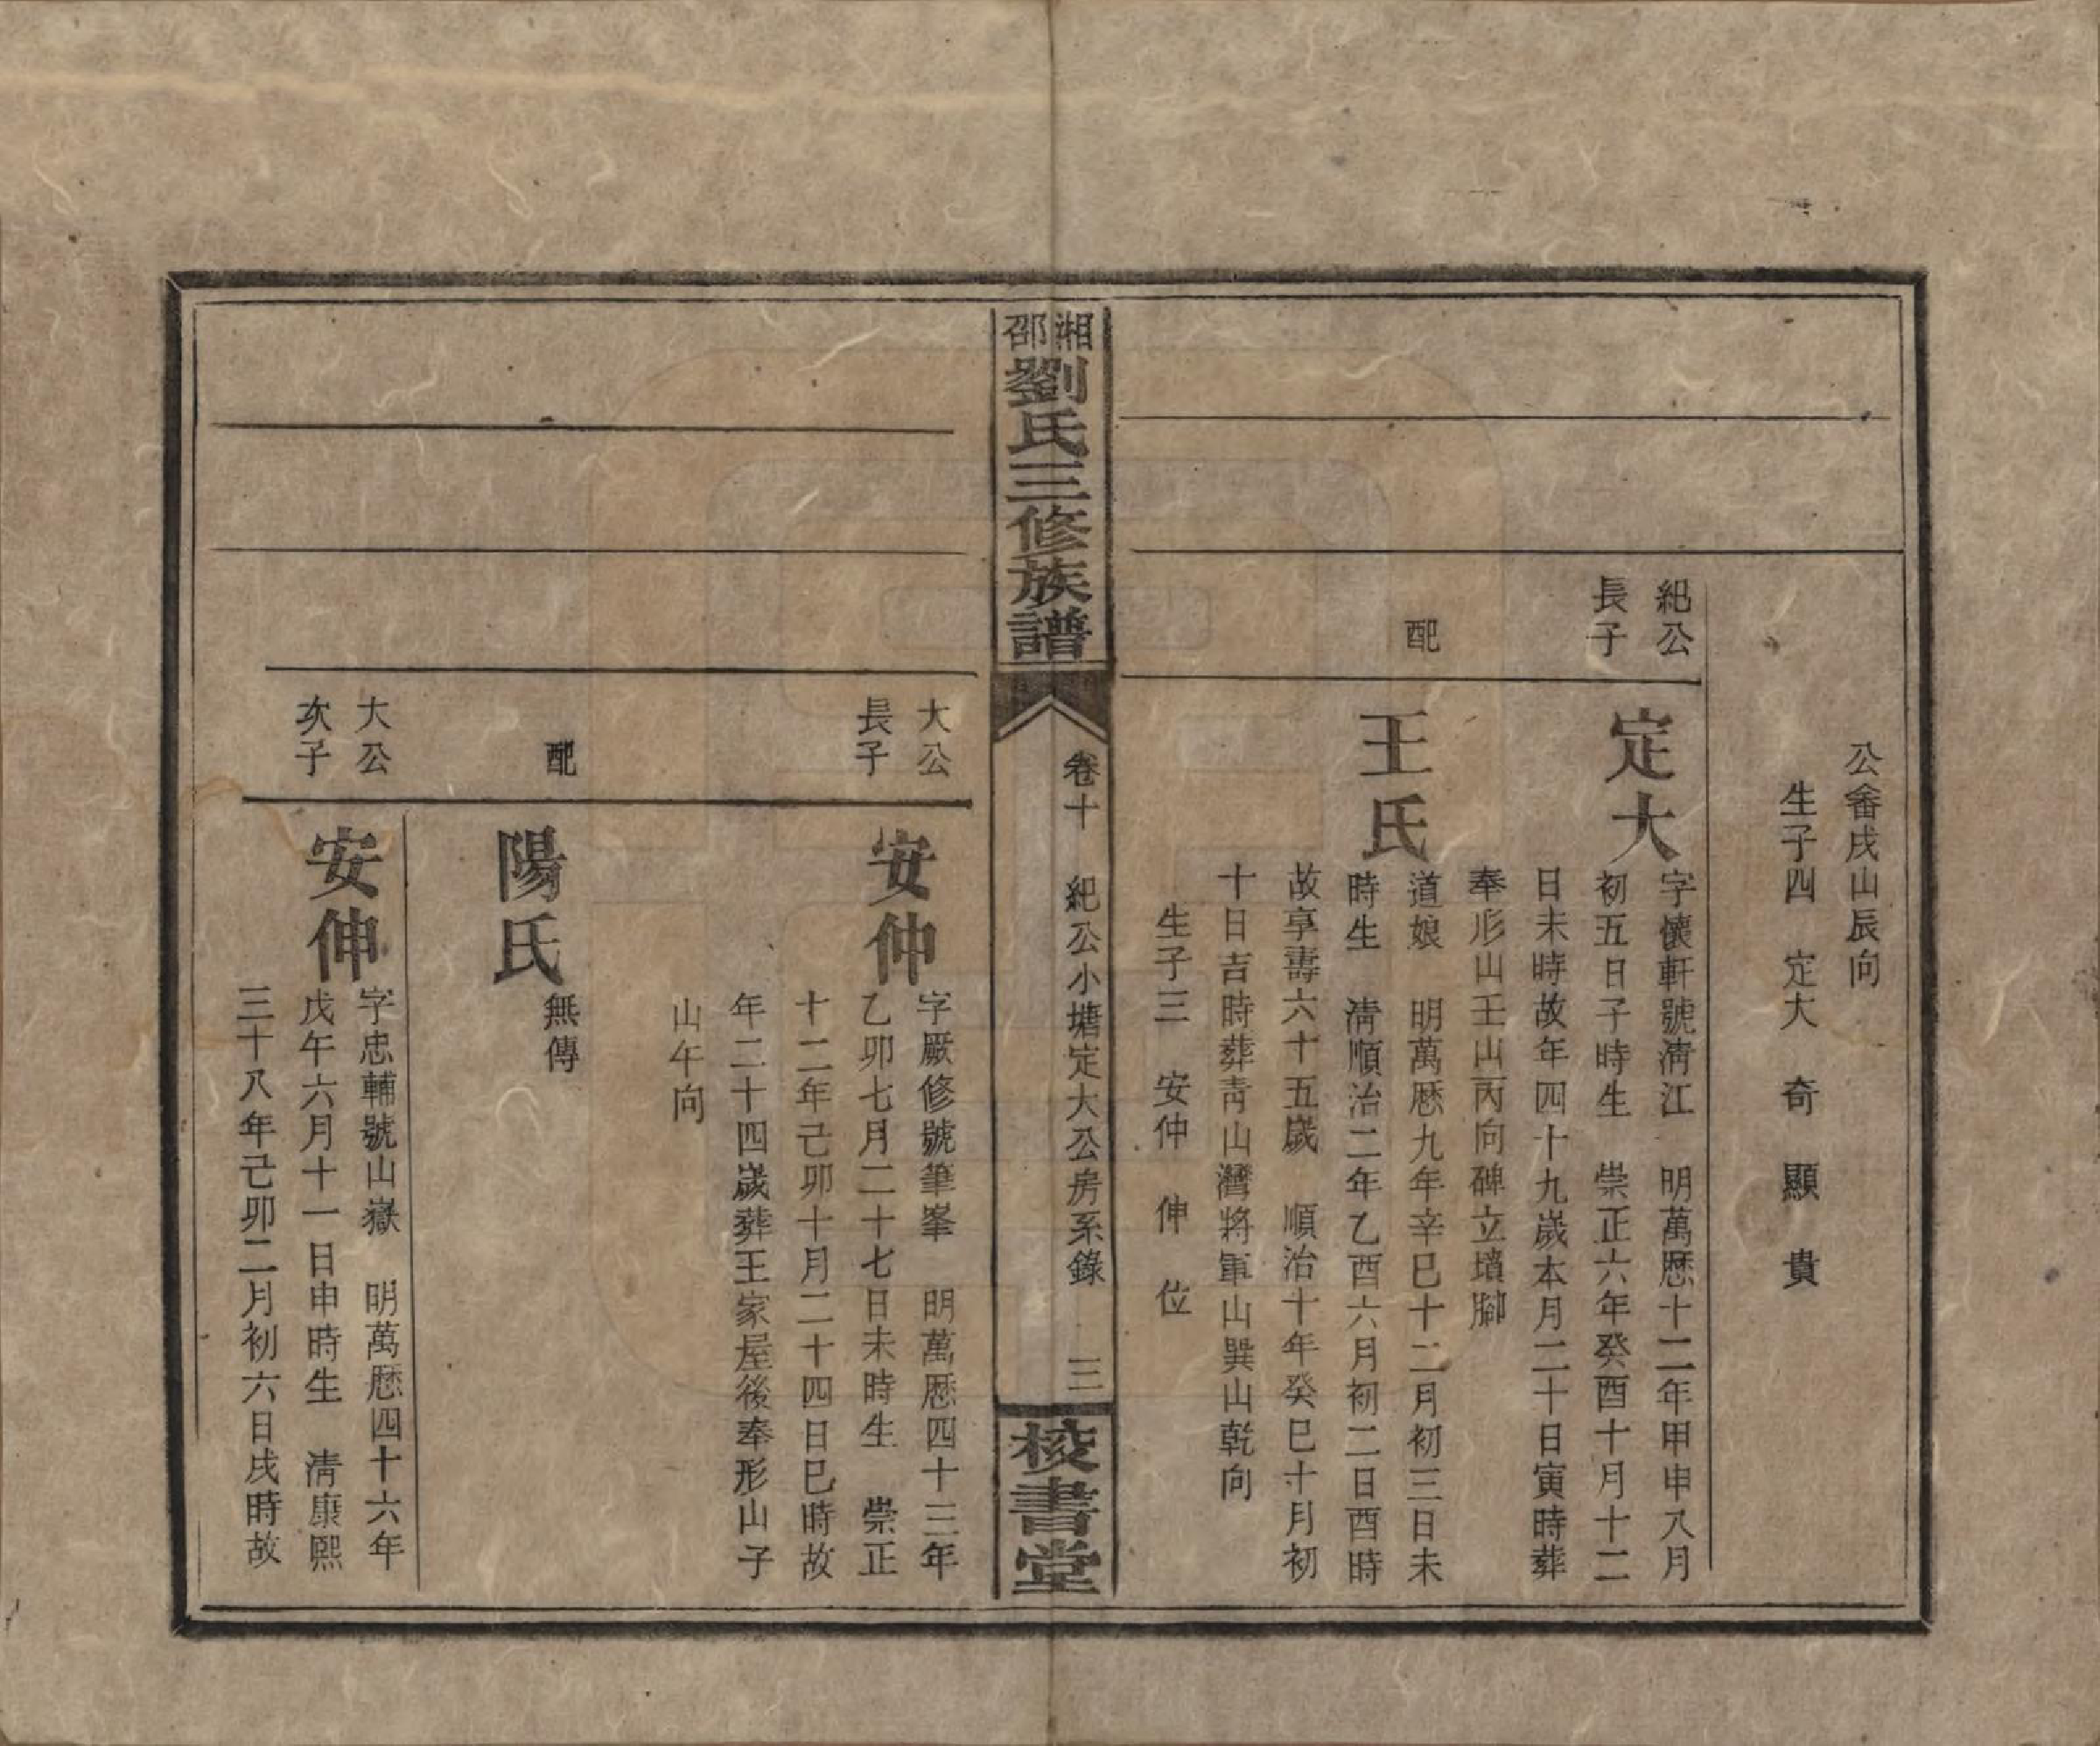 公畬戌山辰向
生子四　定大　奇　顯　貴
紀公
長子
定大
字懷軒號淸江　明萬厯十二年甲申八月
初五日子時生　崇正六年癸酉十月十二
日未時故年四十九歲本月二十日寅時葬
奉形山壬山丙向碑立墳腳
配
王氏
道娘　明萬厯九年辛巳十二月初三日未
時生　淸順治二年乙酉六月初二日酉時
故享壽六十五歲　順治十年癸巳十月初
十日吉時葬靑山灣將軍山巽山乾向
生子三　安仲　伸　位
湘邵劉氏三修族譜
卷十　紀公小塘定大公房系錄　三
校書堂
大公
長子
安仲
字厥修號筆峯　明萬厯四十三年
乙卯七月二十七日未時生　崇正
十二年己卯十月二十四日巳時故
年二十四歲葬王家屋後奉形山子
山午向
配
陽氏
無傳
大公
次子
安伸
字忠輔號山嶽　明萬厯四十六年
戊午六月十一日申時生　淸康熙
三十八年己卯二月初六日戌時故